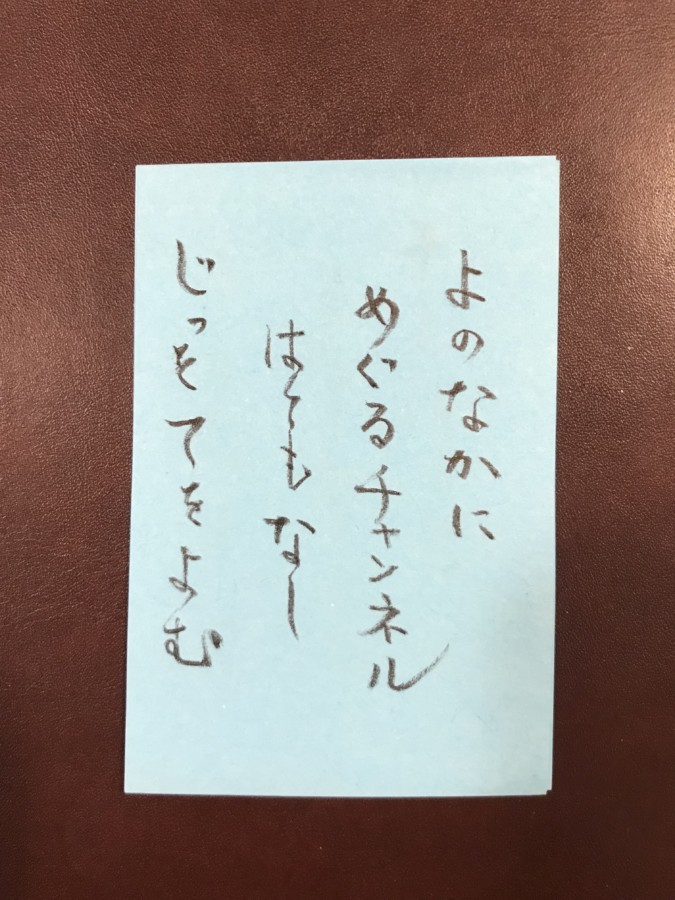 よのなかに
めぐるチャンネル
はてもなし
じっとてをよむ